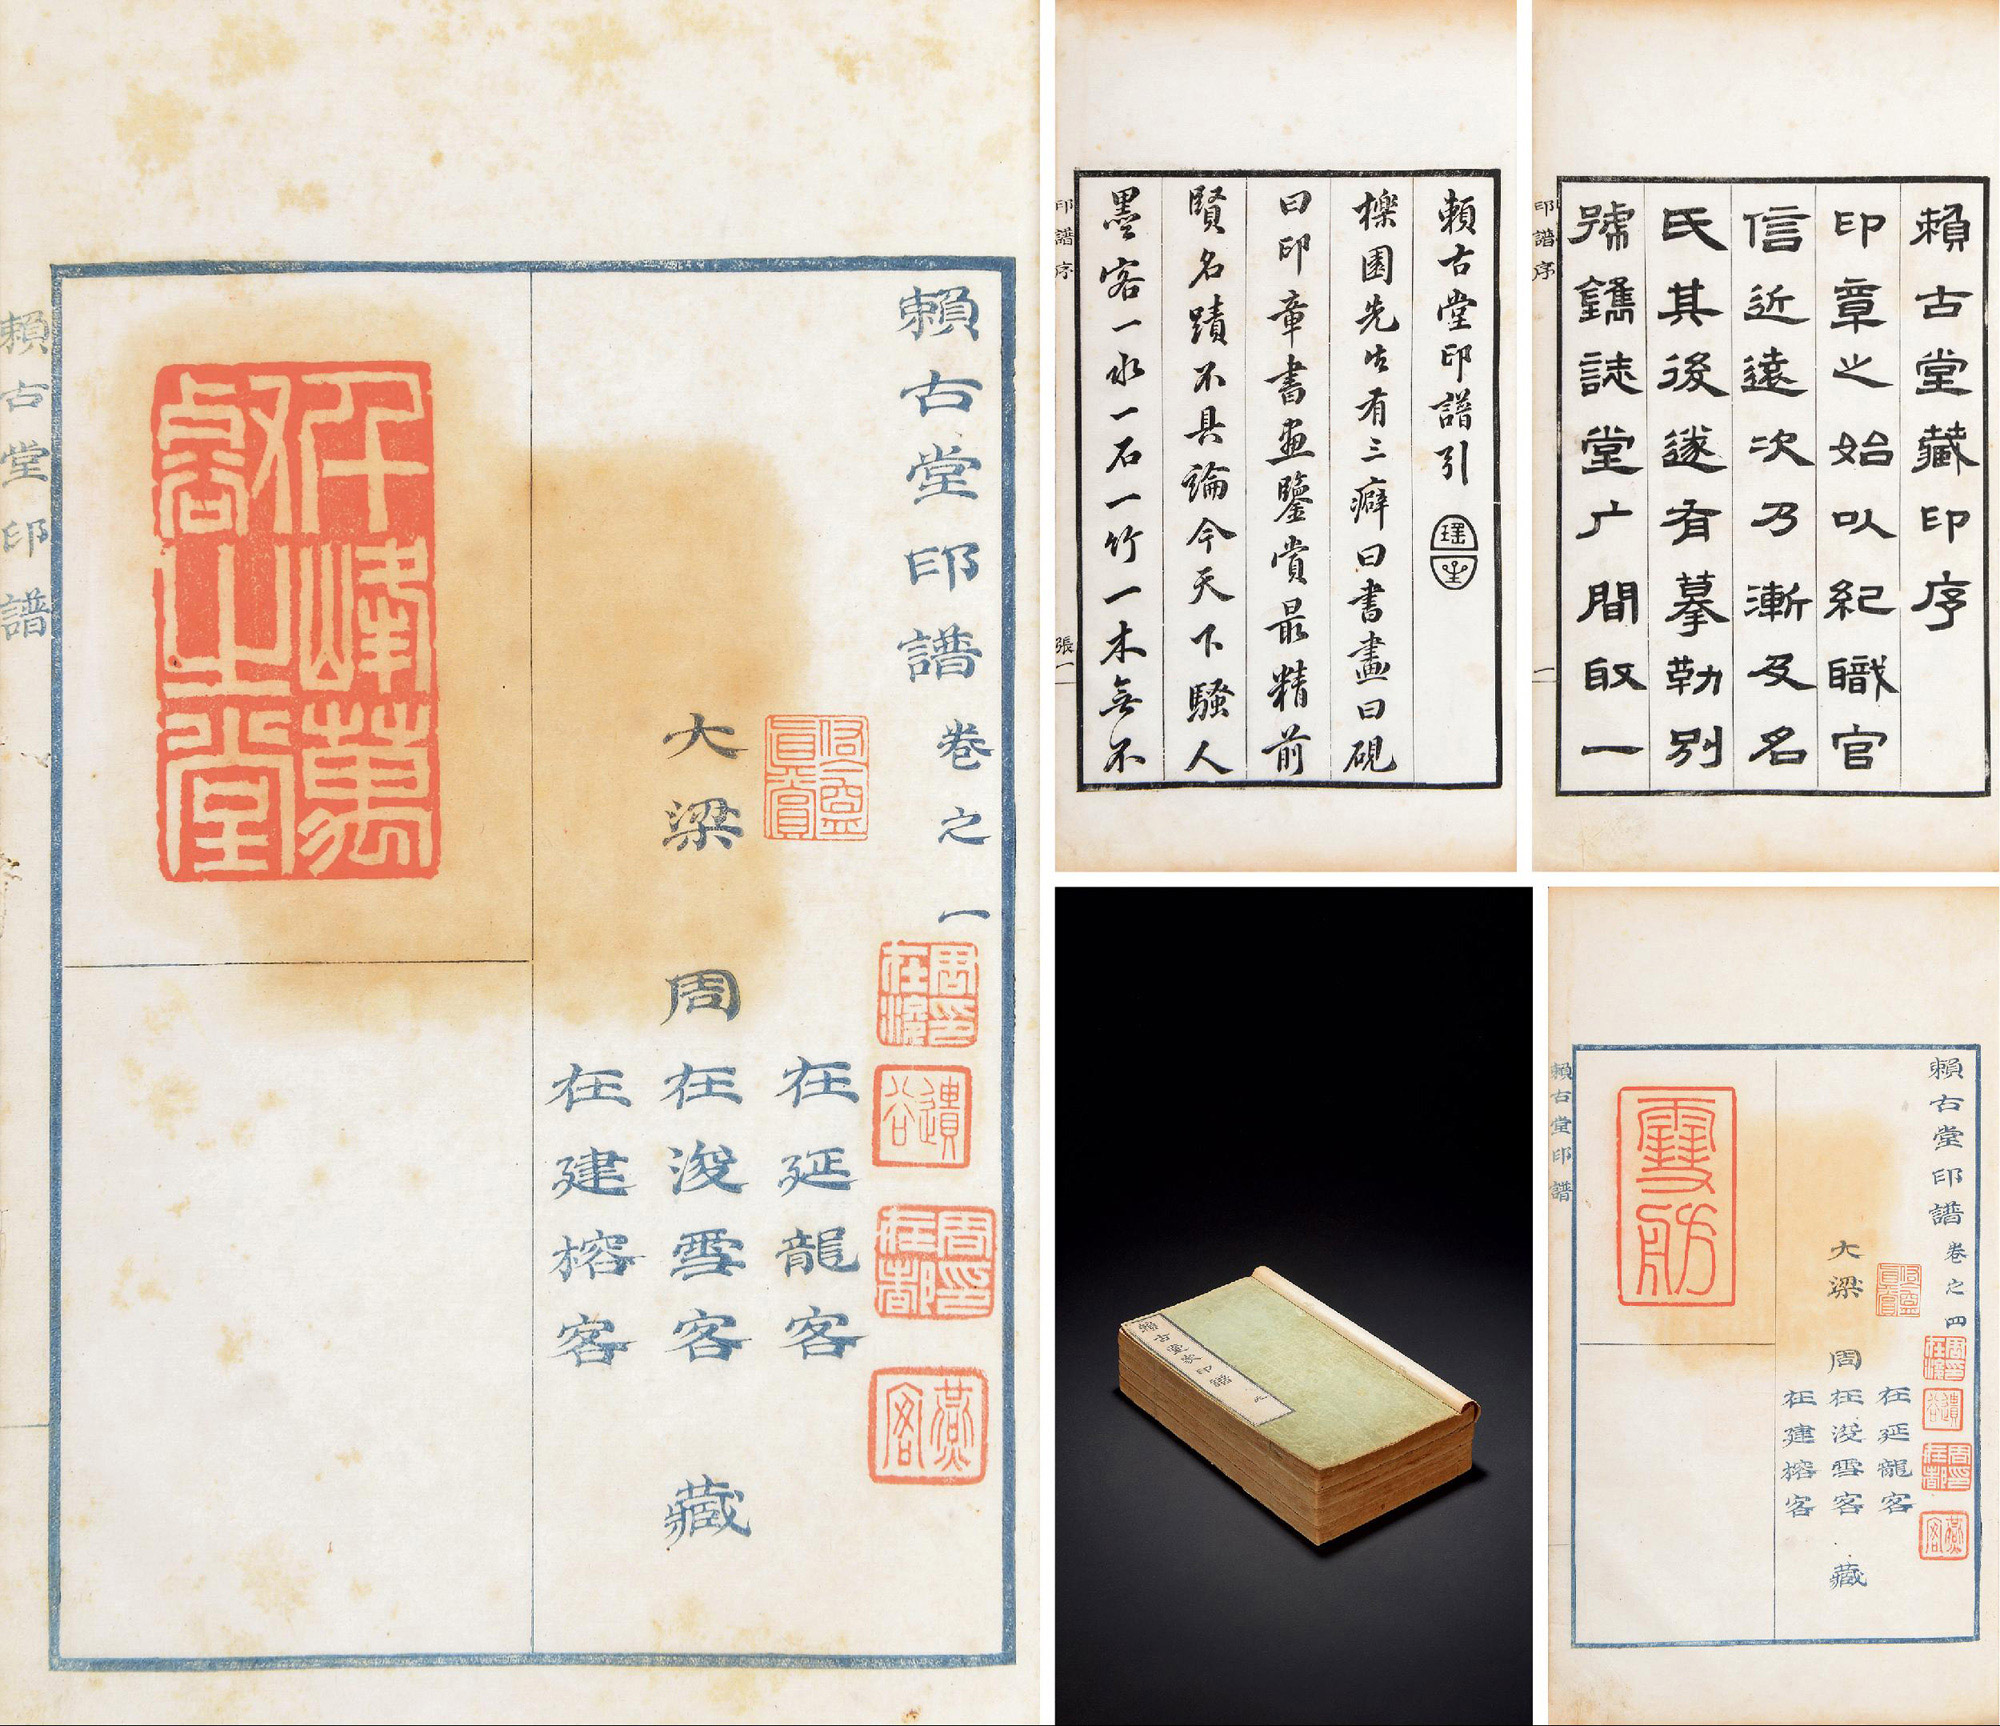 賴古堂印譜卷之一
大梁周
在延龍客
在浚雪客
在建榕客
藏
千峰萬
壑之堂
周在浚印
遺谷
周在都印
燕客
賴古堂印譜
賴古堂印譜引
櫟園先生有三癖曰書畫曰硯
曰印章書畫鑒賞最精前
賢名蹟不具論今天下騷人
墨客一水一石一竹一木無不
印譜序
張一
賴古堂藏印序
印章之始以紀職官
信近遠次乃漸及名
氏其後遂有摹勒別
號鐫誌堂广間取一
印譜序
一
賴古堂印譜卷之四
大梁周
在延龍客
在浚雪客
在建榕客
藏
雪舫
周在浚印
遺谷
周在都印
燕客
賴古堂印譜